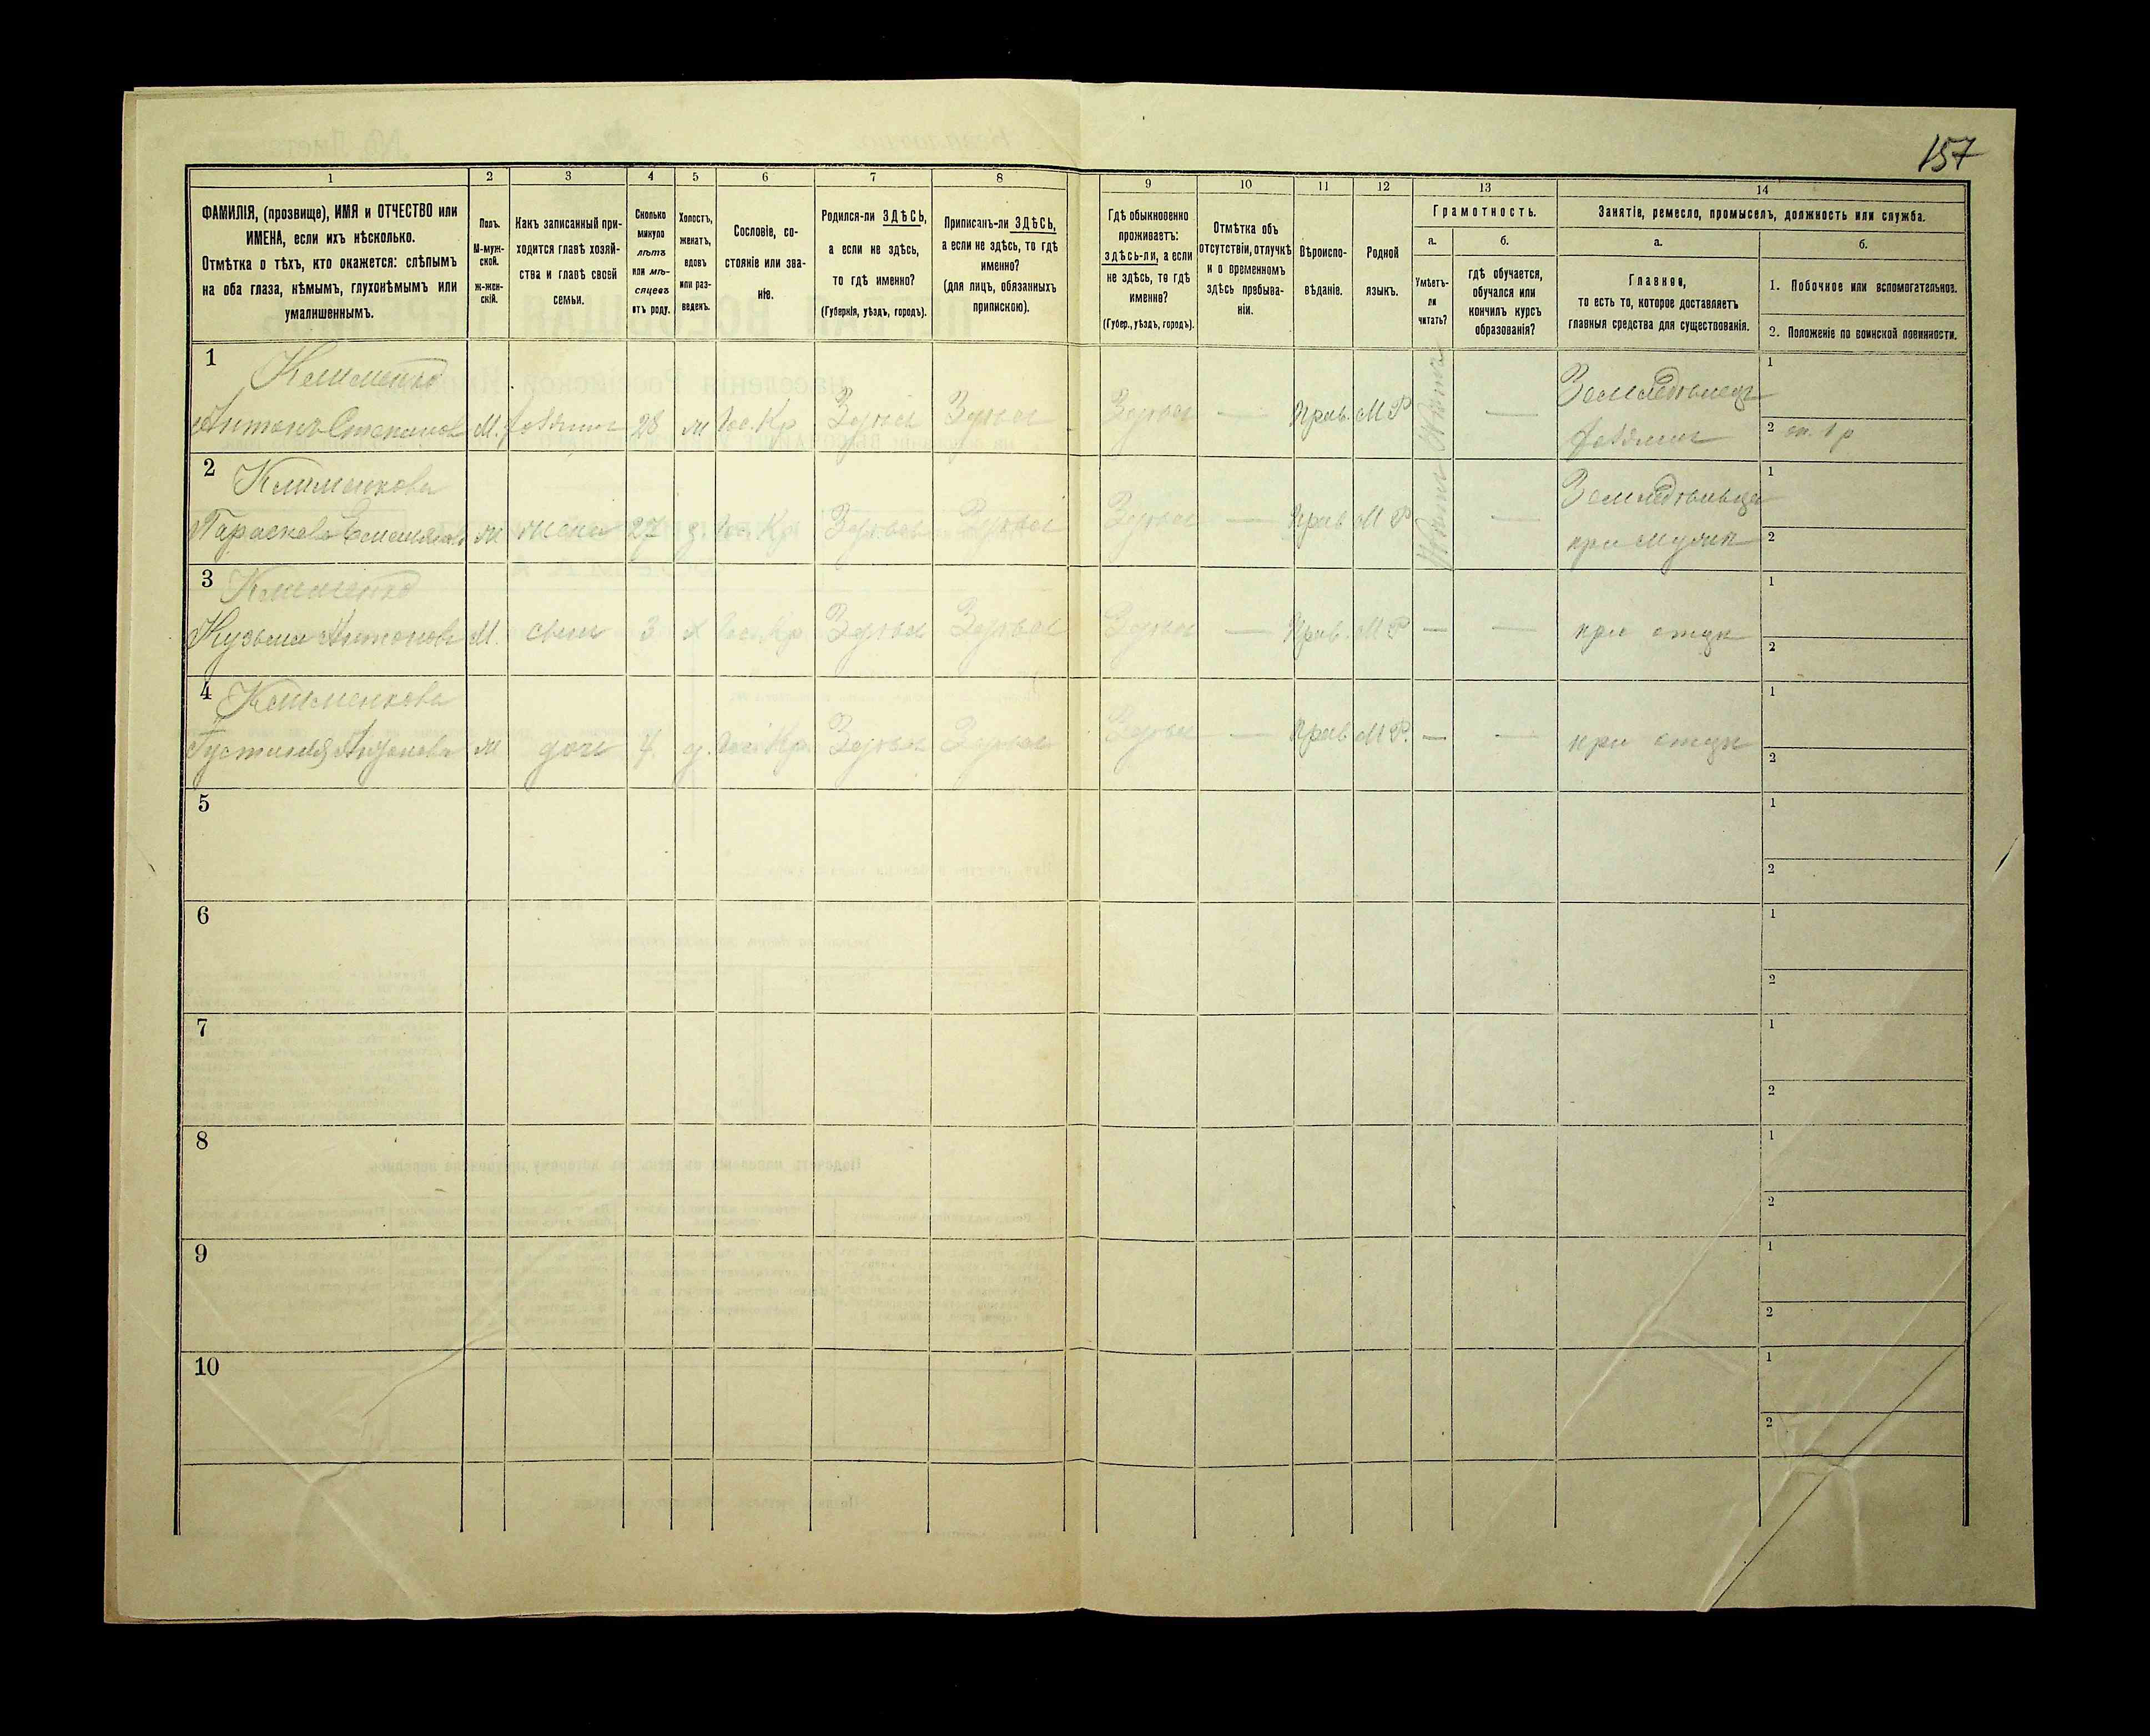 157
1 2 3 4 5 6 7 8 9 10 11 12 13 14
ФАМИЛІЯ, (прозвище), ИМЯ и ОТЧЕСТВО или
ИМЕНА, если ихъ нѣсколько.
Отмѣтка о тѣхъ, кто окажется: слѣпымъ
на оба глаза, нѣмымъ, глухонѣмымъ или
умалишеннымъ.
Полъ.
М-муж-
ской.
ж-жен-
скій.
Какъ записанный при-
ходится главѣ хозяй-
ства и главѣ своей
семьи.
Сколько
минуло
лѣтъ
или мѣ-
сяцевъ
отъ роду.
Холостъ,
женатъ,
вдовъ
или раз-
веденъ.
Сословіе, со-
стояніе или зва-
ніе.
Родился-ли ЗДѢСЬ,
а если не здѣсь,
то гдѣ именно?
(Губернія, уѣздъ, городъ).
Приписанъ-ли ЗДѢСЬ,
а если не здѣсь, то гдѣ
именно?
(для лицъ, обязанныхъ
припискою).
Гдѣ обыкновенно
проживаетъ:
здѣсь-ли, а если
не здѣсь, то гдѣ
именно?
(Губер., уѣздъ, городъ).
Отмѣтка объ
отсутствіи, отлучкѣ
и о временномъ
здѣсь пребыва-
ніи.
Вѣроиспо-
вѣданіе.
Родной
языкъ.
Грамотность.
а.
Умѣетъ-
ли
читать?
б.
гдѣ обучается,
обучался или
кончилъ курсъ
образованія?
Занятіе, ремесло, промыселъ, должность или служба.
а.
Главное,
то есть то, которое доставляетъ
главныя средства для существованія.
б.
1. Побочное или вспомогательное.
2. Положеніе по воинской повинности.
1
Клименко
Антонъ Степановъ М. хозяинъ 28 ж Гос. Кр Здѣсь Здѣсь Здѣсь — Прав. М Р —
Земледѣлецъ
хозяинъ
1
2
2
Клименкова
Параскева ж жена 27 з. Гос. Кр Здѣсь Здѣсь Здѣсь — Прав М Р —
при мужѣ
1
2
3
Клименко
Кузьма Антоновъ М. сынъ 3 х Гос. Кр Здѣсь Здѣсь Здѣсь — Прав. М Р — — при отцѣ
1
2
4
Клименкова
Антонова ж дочь д. Гос. Кр. Здѣсь Здѣсь Здѣсь — Прав М Р. — — при отцѣ
1
2
5
1
2
6
1
2
7
1
2
8
1
2
9
1
2
10
1
2